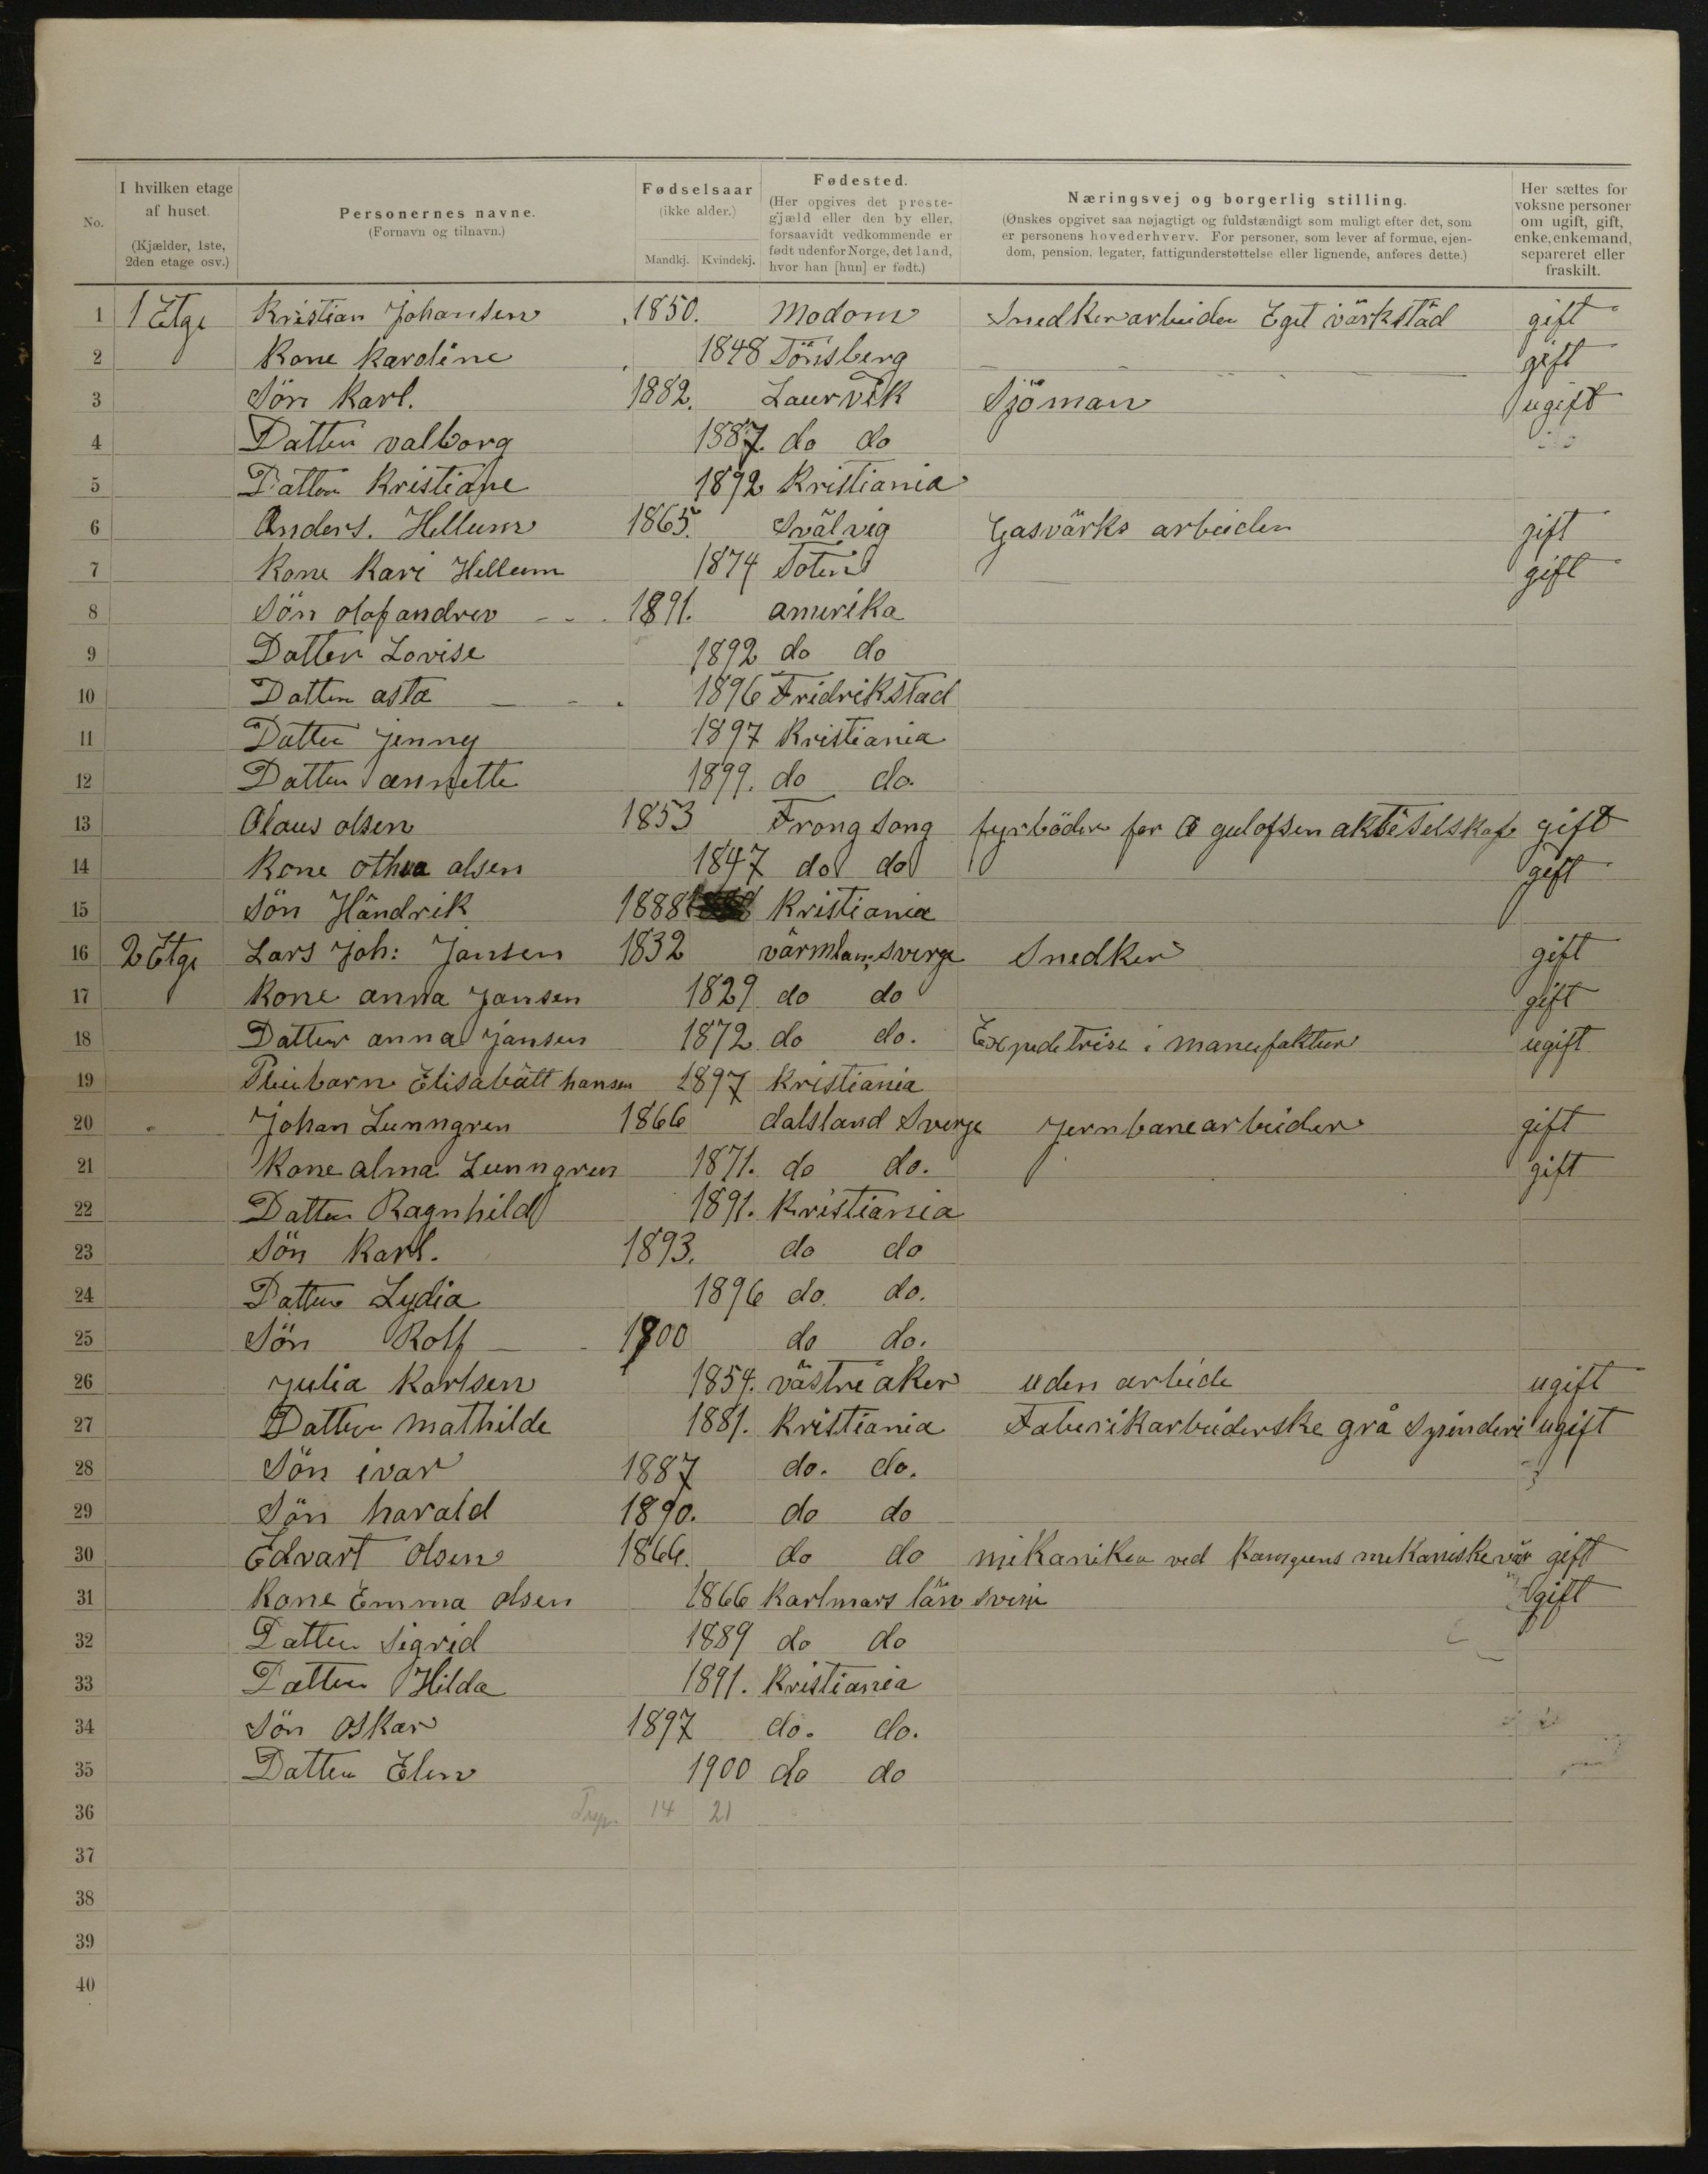 No.
I hvilken etage
af huset.
(Kjælder, 1ste,
2den etage osv.)
Personernes navne.
(Fornavn og tilnavn.)
Fødselsaar
(ikke alder.)
Mandkj. Kvindekj.
Fødested.
(Her opgives det preste-
gjæld eller den by eller,
forsaavidt vedkommende er
født udenfor Norge, det land,
hvor han [hun] er født.)
Næringsvej og borgerlig stilling.
(Ønskes opgivet saa nøjagtigt og fuldstændigt som muligt efter det, som
er personens hovederhverv. For personer, som lever af formue, ejen-
dom, pension, legater, fattigunderstøttelse eller lignende, anføres dette.)
Her sættes for
voksne personer
om ugift, gift,
enke, enkemand,
separeret eller
fraskilt.
1 1 Etge Kristian Johansen 1850. Modom Snedker arbeider Eget värkstäd gift
2 Kone Karoline 1848 Tönsberg gift
3 Sön Karl. 1882. Laurvik Sjöman ugift
4 Datter valborg 1887. do do
5 Datter Kristiane 1892 Kristiania
6 Anders. Hellum 1865. Svälvig Gasvärks arbeider gift
7 Kone Kari Hellum 1874 Toten gift
8 Sön olaf andrev 1891. amerika
9 Datter Lovise 1892 do do
10 Datter asta 1896 Fridrikstad
11 Datter Jenny 1897 Kristiania
12 Datter annette 1899. do do.
13 Olaus olsen 1853 Frong song fyrböder for gulofsen aktiselskap gift
14 Kone othea olsen 1847 do do gift
15 Sön Händrik 1888 Kristiania
16 2 Etge Lars Joh: Jansen 1832 värmlan, sverge Snedker gift
17 Kone anna Jansen 1829 do do gift
18 Datter anna Jansen 1872 do do. Expedetrise i manufaktur ugift
19 Pleibarn Elisabätt hansen 1897 Kristiania
20 Johan Lunngren 1866 dalsland Sverge Jernbanearbeider gift
21 Kone alma Lunngren 1871. do do. gift
22 Datter Ragnhild 1891. Kristiania
23 Sön Karl. 1893. do do
24 Datter Lydia 1896 do do.
25 Sön Rolf 1900 do do.
26 Julia Karlsen 1854. västre åker uden arbeide ugift
27 Datter Mathilde 1881. Kristiania Faberikarbeiderske grå Spinderi ugift
28 Sön ivar 1887 do. do.
29 Sön harald 1890. do do
30 Edvart Olsen 1866. do do mikaniker ved mekaniske vär gift
31 Kone Emma olsen 1866 Karlmars län sverje gift
32 Datter Sigrid 1889 do do
33 Datter Hilda 1891. Kristiania
34 Sön Oskar 1897 do. do.
35 Datter Elen 1900 do do
36 14 21
37
38
39
40